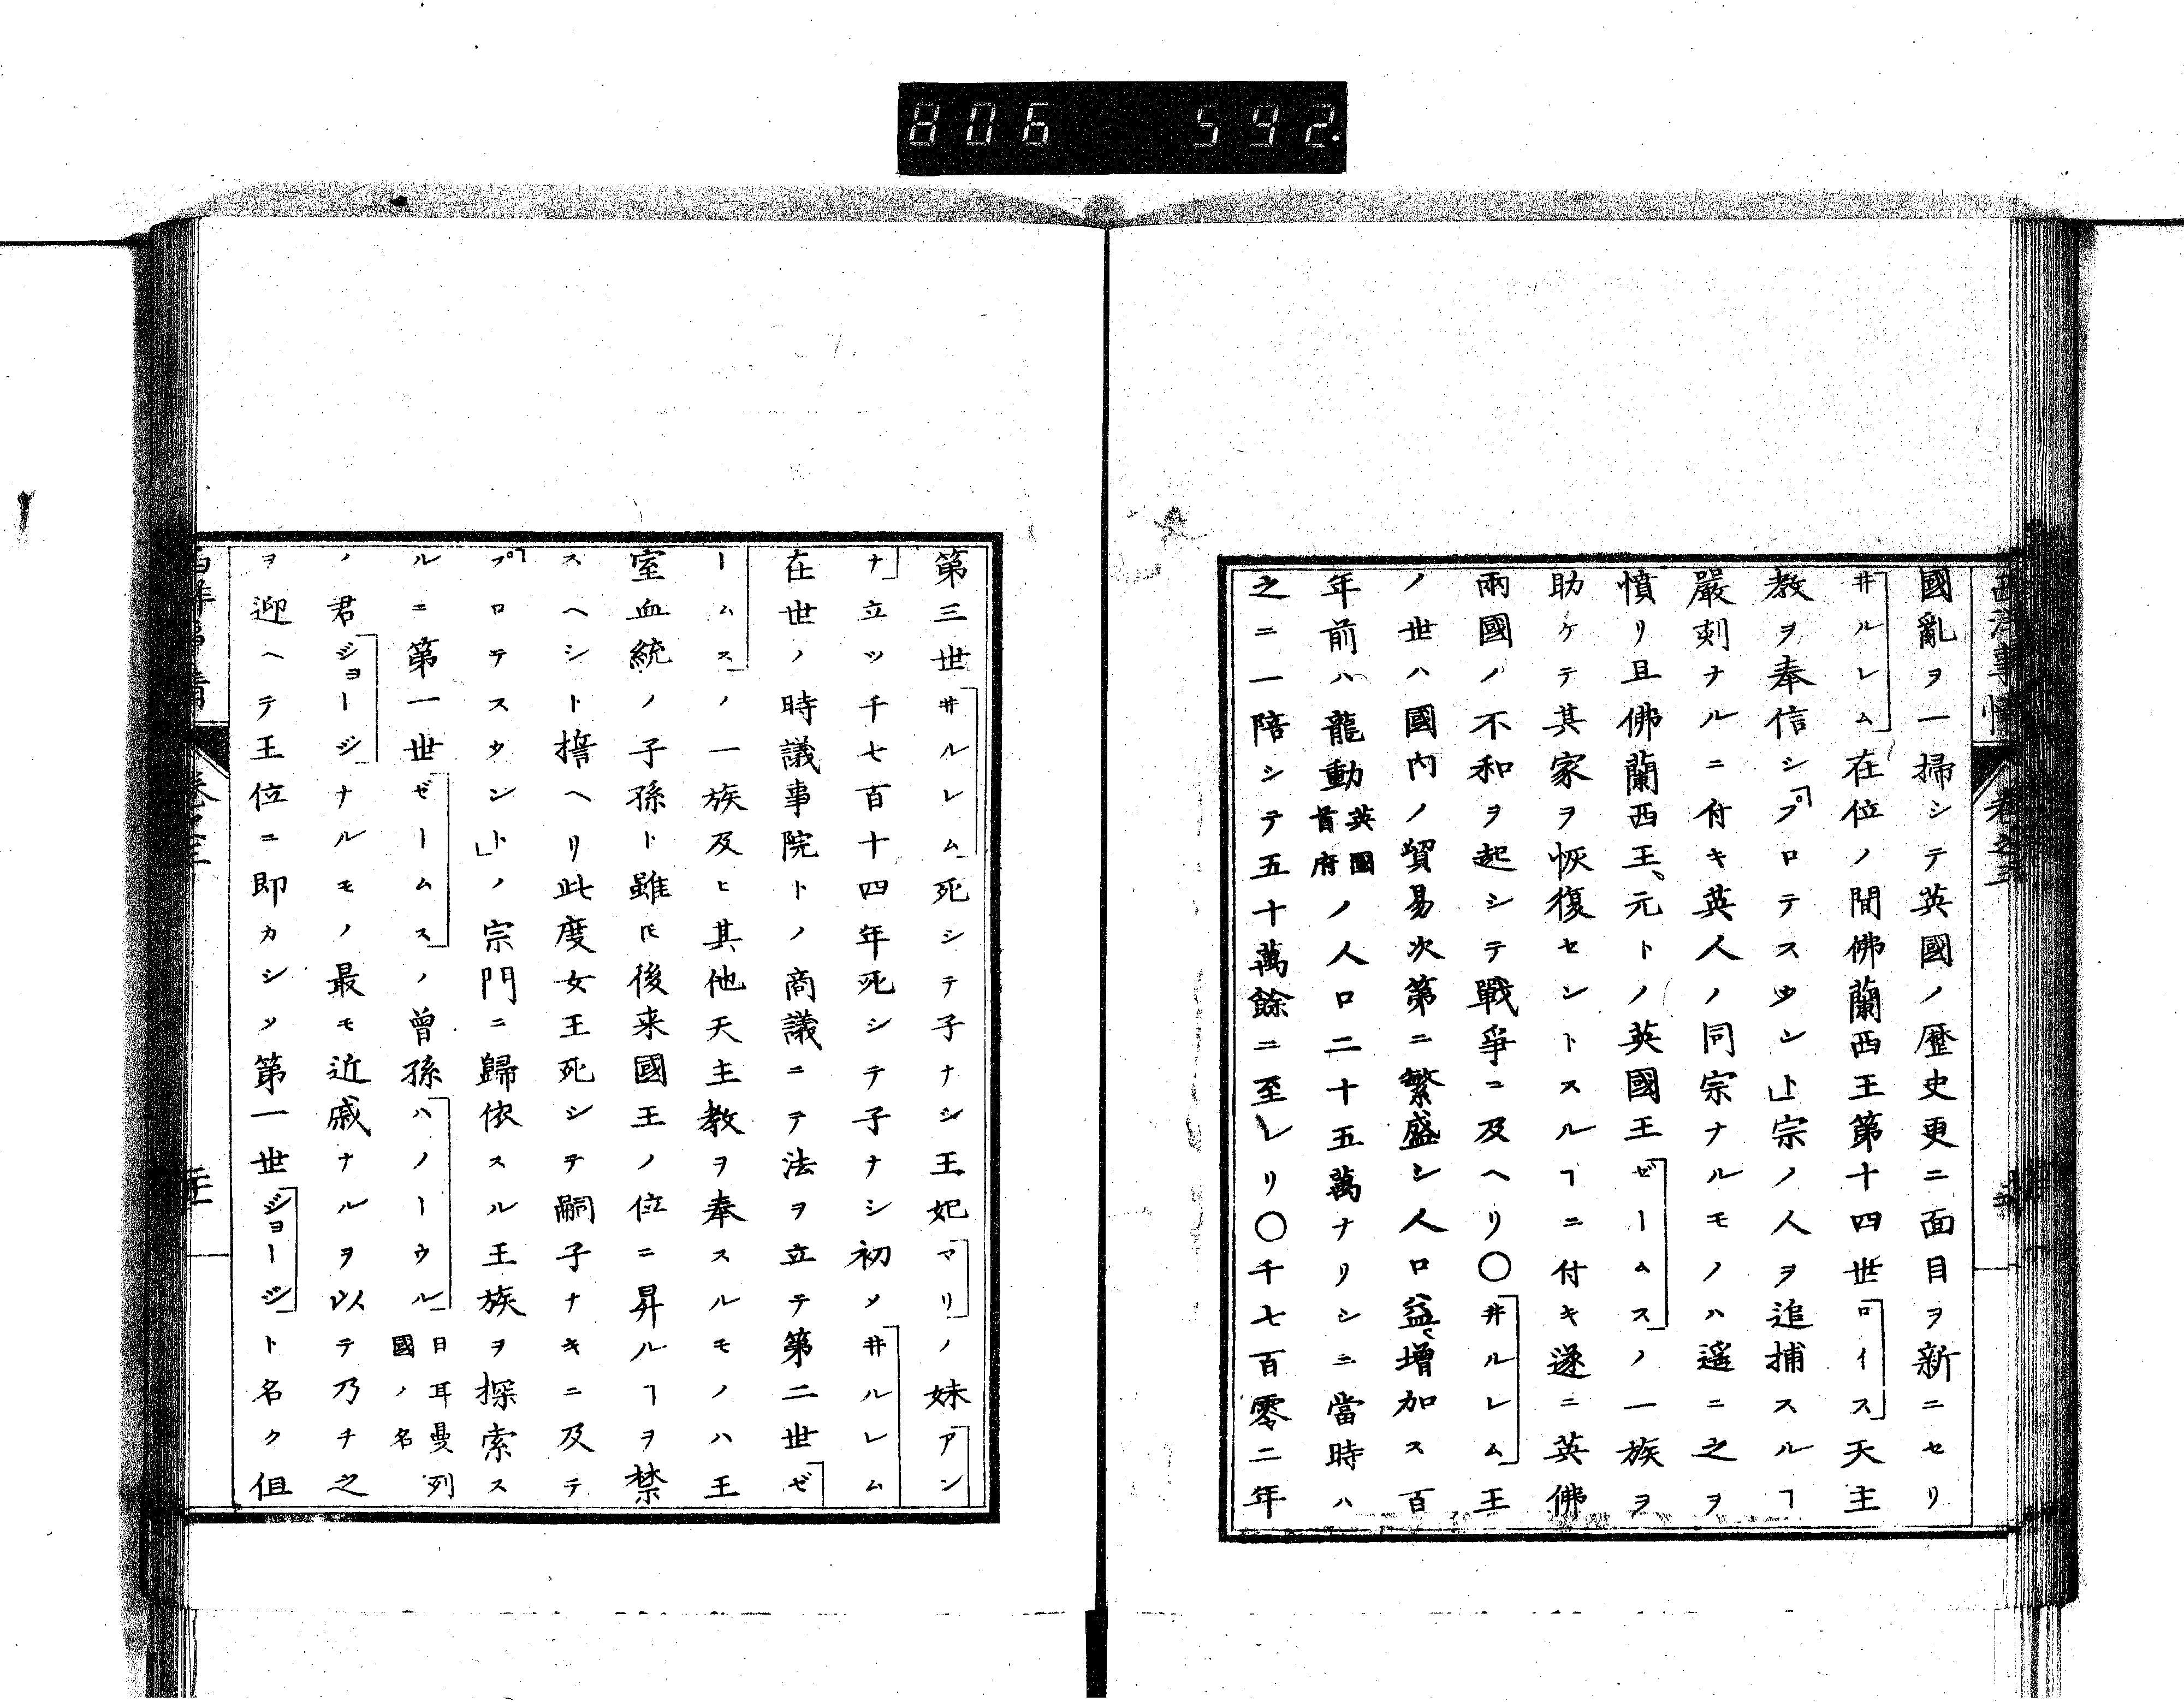 806 592.
西洋事情 卷之三
國亂ヲ一掃シテ英國ノ歷史更ニ面目ヲ新ニセリ
「井ルレム」在位ノ間佛蘭西王第十四世「ロイス」天主
教ヲ奉信シ「プロテスタント」宗ノ人ヲ追捕スルヿ
嚴刻ナルニ付キ英人ノ同宗ナルモノハ遙ニ之ヲ
憤リ且佛蘭西王、元トノ英國王「ゼームス」ノ一族ヲ
助ケテ其家ヲ恢復セントスルヿニ付キ遂ニ英佛
兩國ノ不和ヲ起シテ戰爭ニ及ヘリ〇「井ルレム」王
ノ世ハ國内ノ貿易次第ニ繁盛シ人口益〻增加ス百
年前ハ龍動英國首府ノ人口二十五萬ナリシニ當時ハ
之ニ一陪シテ五十萬餘ニ至レリ〇千七百零二年
第三世「井ルレム」死シテ子ナシ王妃「マリ」ノ妹「アン
ナ」立ツ千七百十四年死シテ子ナシ初メ「井ルレム
在世ノ時議事院トノ商議ニテ法ヲ立テ第二世「ゼ
ームス」ノ一族及ヒ其他天主教ヲ奉スルモノハ王
室血統ノ子孫ト雖𪜈後来國王ノ位ニ昇ルヿヲ禁
スヘシト誓ヘリ此度女王死シテ嗣子ナキニ及テ
「プロテスタント」ノ宗門ニ歸依スル王族ヲ探索ス
ルニ第一世「ゼームス」ノ曾孫「ハノーウル」日耳曼列國ノ名
ノ君「ジョージ」ナルモノ最モ近戚ナルヲ以テ乃チ之
ヲ迎ヘテ王位ニ即カシメ第一世「ジョージ」ト名ク但
西洋事情 卷之三